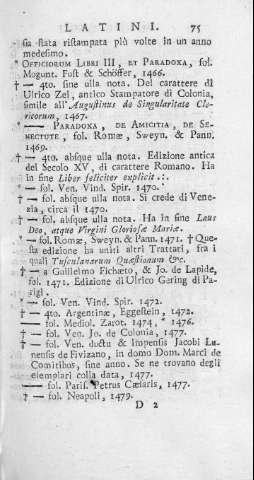 LATINI. 75
sia stata ristampata più volte in un anno
medesimo.
* OFFICIORUM LIBRI III, ET PARADOXA, fol.
Mogunt. Fust & Schöffer, 1466.
† — 4to. sine ulla nota. Del carattere di
Ulric Zel, antico Stampatore di Colonia,
simile all'Augustinus de Singularitate Cle-
ricorum, 1467.
* —— PARADOXA, DE AMICITIA, DE SE-
NECTUTE, fol. Romæ, Sweyn. & Pann.
1469.
† — 4to. absque ulla nota. Edizione antica
del Secolo XV, di carattere Romano. Ha
in fine Liber feliciter explicit.:.
* — fol. Ven. Vind. Spir. 1470.
† — fol. absque ulla nota. Si crede di Vene-
zia, circa il 1470.
† — fol. absque ulla nota. Ha in fine Laus
Deo, atque Virgini Gloriosæ Mariæ.
* — fol. Romæ, Sweyn. & Pann. 1471. † Que-
sta edizione ha uniti altri Trattati, fra i
quali Tusculanarum Quæstionum &c.
† — a Guilielmo Fichæto, & Jo. de Lapide,
fol. 1471. Edizione di Ulric Gering di Pa-
rigi.
* — fol. Ven. Vind. Spir. 1472.
† — 4to. Argentinæ, Eggestein, 1472.
—— fol. Mediol. Zarot. 1474, * 1476.
† — fol. Ven. Jo. de Colonia, 1477.
† — fol. Ven. ductu & impensis Jacobi Lu-
nensis de Fivizano, in domo Dom. Marci de
Comitibus, sine anno. Se ne trovano degli
esemplari colla data, 1477.
—— fol. Paris. Petrus Cæsaris, 1477.
† — fol. Neapoli, 1479.
D 2